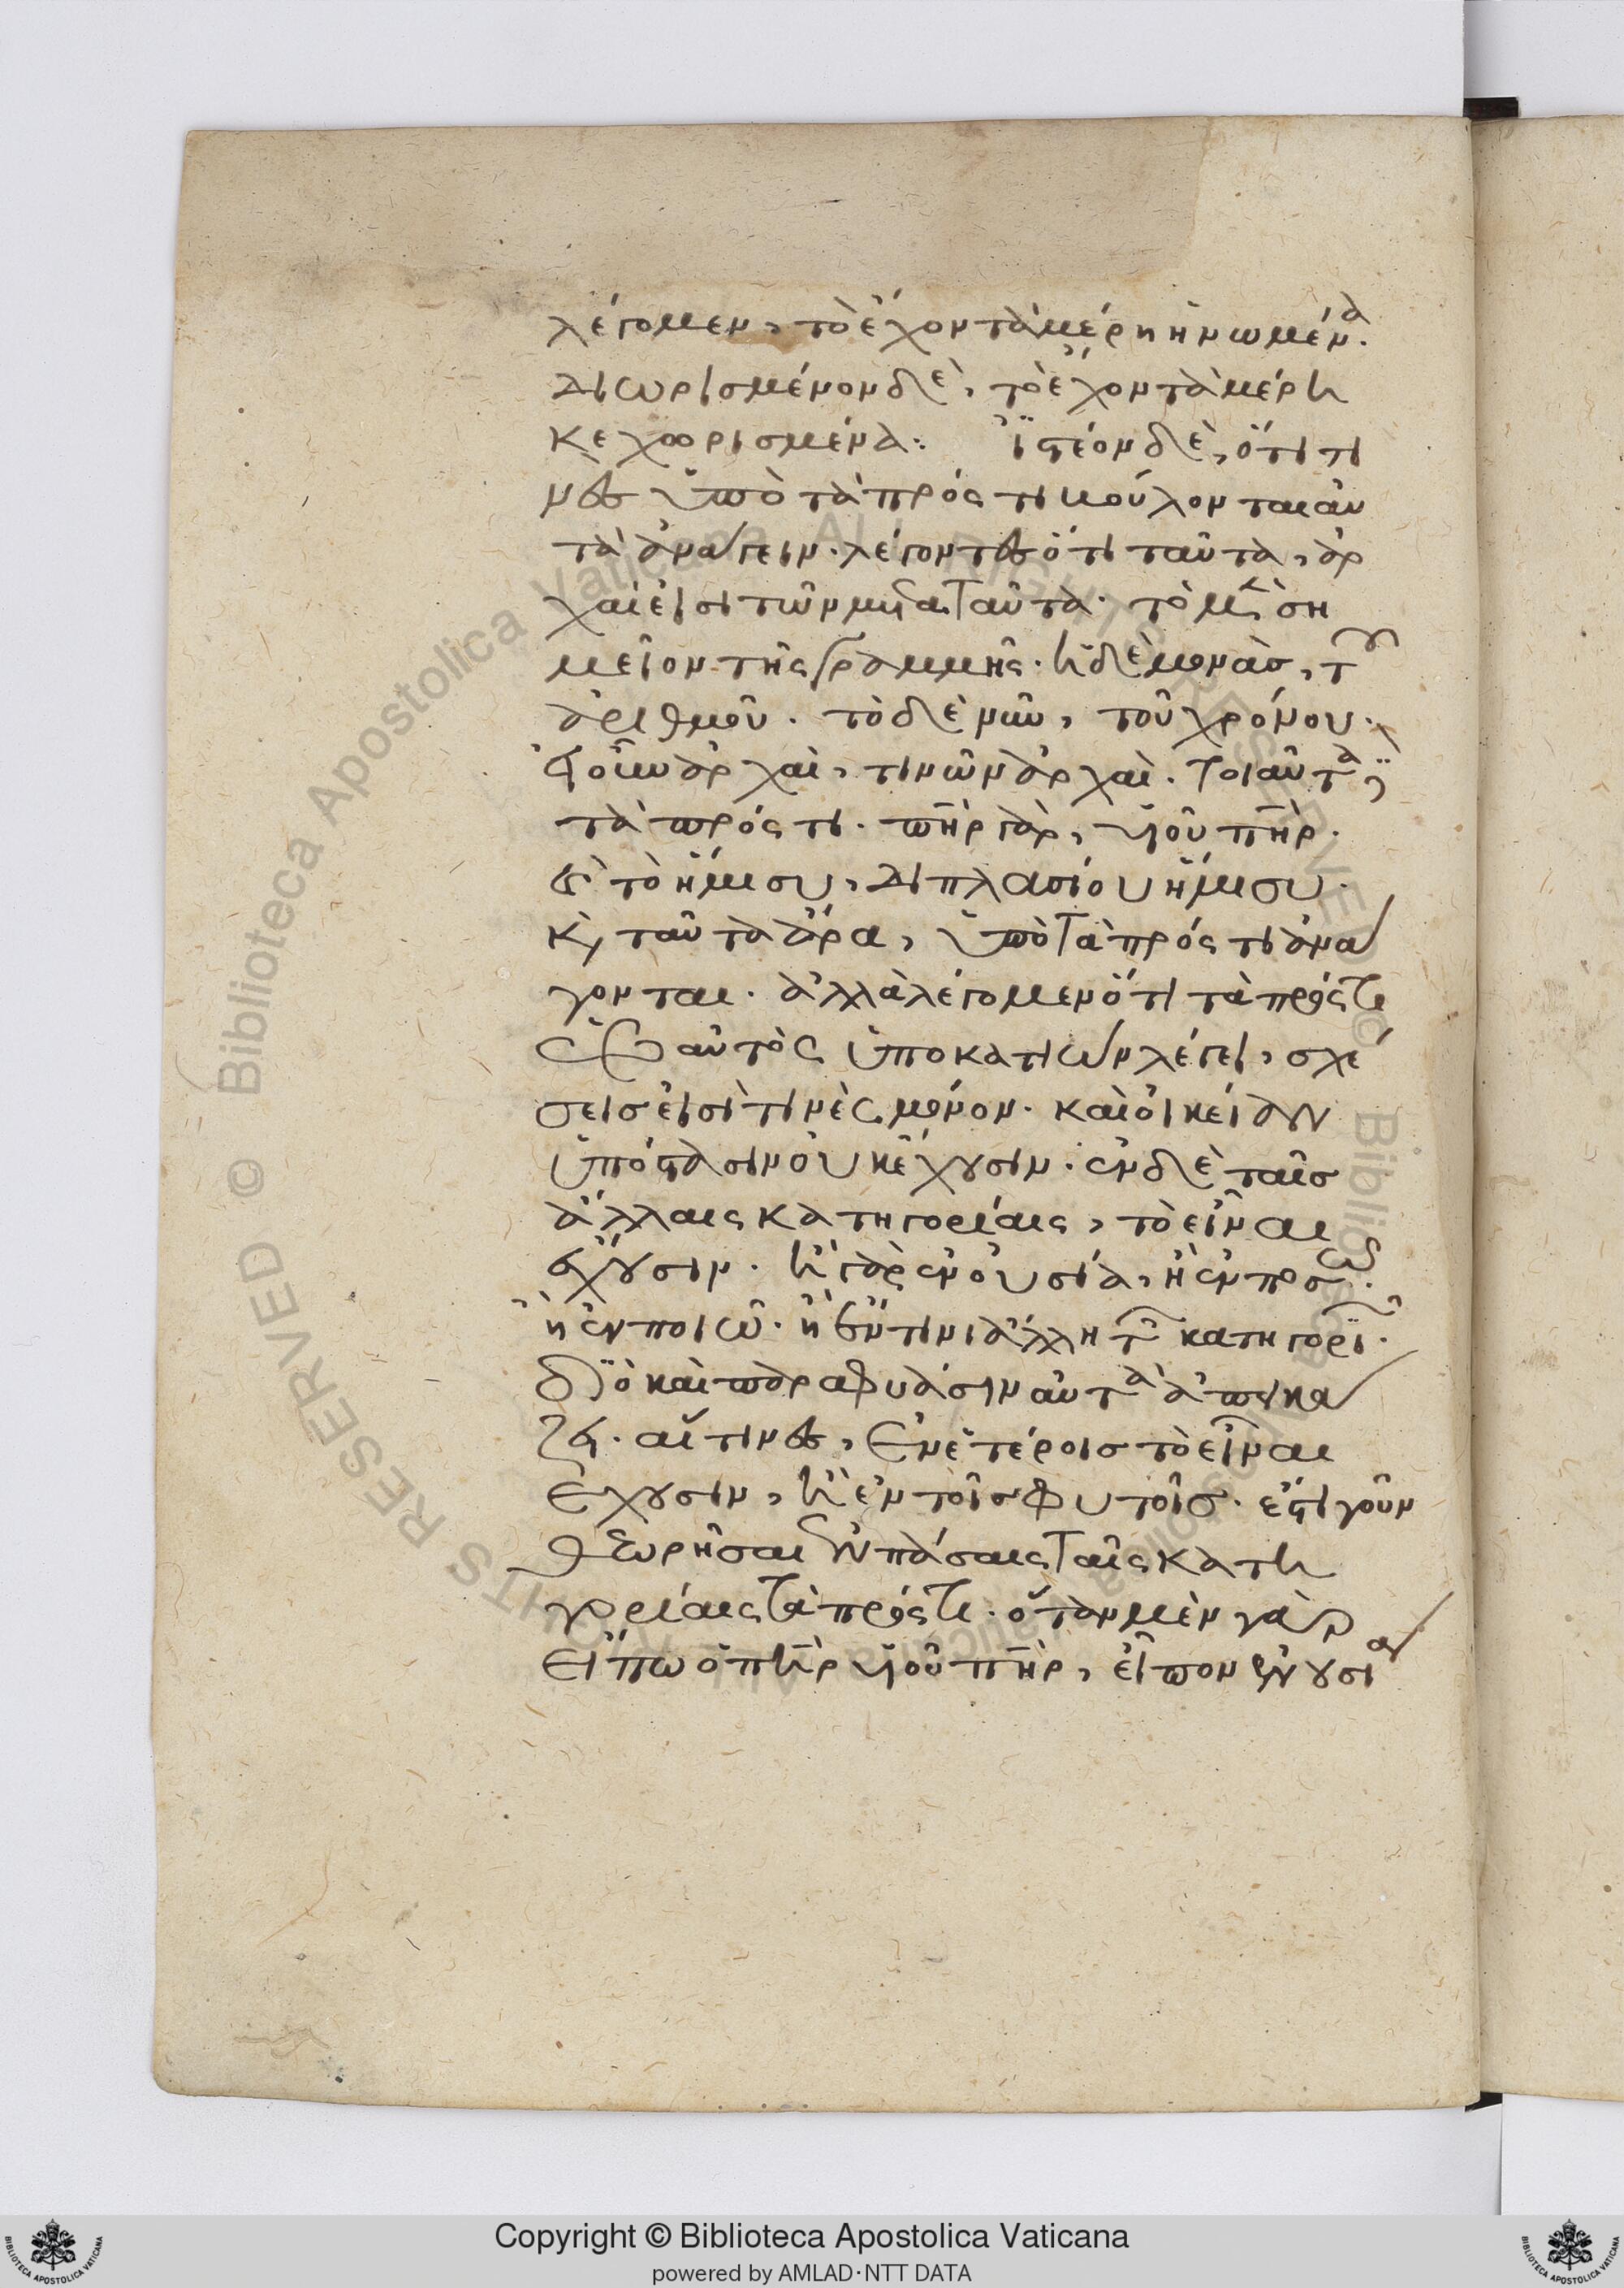 λέγομεν, τὸ ἔχον τὰ μέρη ἡνωμένα.
διωρισμένον δὲ, τὸ ἔχον τὰ μέρη
κεχωρισμένα: ἰστέον δὲ, ὅτι τι
νὲς ὑπὸ τὰ πρός τι βούλονται αὐ
τὰ ἀνάγειν. λέγοντες ὅτι ταῦτα, ἀρ
χαί εἰσι τῶν μετὰ ταῦτα. τὸ μὲν ση
μεῖον τῆς γραμμῆς. ἡ δὲ μονὰς, τοῦ
ἀριθμοῦ. τὸ δὲ νῦν, τοῦ χρόνου.
αἱ οὖν ἀρχαὶ, τινῶν ἀρχαὶ. τοιαῦτα
τὰ πρός τι. πηρ γὰρ, υἱοῦ πηρ.
καὶ τὸ ἥμισυ, διπλασίου ἥμισυ.
καὶ ταῦτα ἄρα, ὑπὸ τὰ πρός τι ἀνά
γονται. ἀλλὰ λέγομεν ὅτι τὰ πρός τι
ὡς αὐτὸς ὑποκατιὼν λέγει, σχέ
σεις εἰσί τινὲς μόνον. καὶ οἰκείαν
ὑπόστασιν οὐκ ἔχουσιν. ἐν δὲ ταῖς
ἄλλαις κατηγορίαις, τὸ εἶναι
ἔχουσιν. ἢ γὰρ ἐν οὐσία, ἢ ἐν ποσῶ.
ἢ ἐν ποιῶ. ἢ ἔν τινι ἄλλη τῶν κατηγοριῶν.
διὸ καὶ παραφυάσιν αὐτὰ ἀπεικά
ζει. αἵ τινες, ἐν ἑτέροις τὸ εἶναι
ἔχουσιν, ἢ ἐν τοῖς φυτοῖς. ἔστι γοῦν
θεωρῆσαι ἐν πάσαις ταῖς κατη
γορίαις τὰ πρός τι. ὅταν μὲν γὰρ
εἴπω ὁ πηρ υἱοῦ πηρ, εἶπον ἐν οὐσία
Copyright © Biblioteca Apostolica Vaticana
powered by AMLAD·NTT DATA